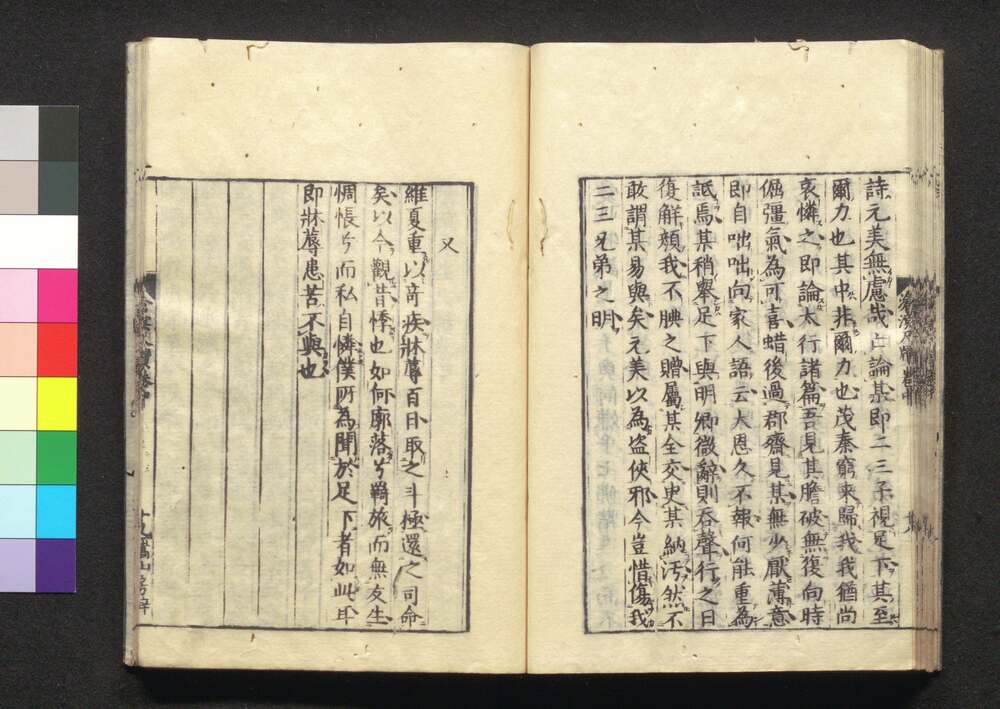 詩元美無慮哉占論某即二三子視足下其至
爾力也其中非爾力也茂秦窮來歸我我猶尚
哀憐之即論太行諸篇吾見其膽破無復向時
倔彊氣為可喜蜡後過郡齋見某無少厭薄意
即自咄咄向家人語云大恩久不報何能重為
詆焉某稍舉足下與明卿微辭則吞聲行之日
復解頰我不腆之贈屬某全交史某納汚然不
敢謂某易與矣元美以為盗俠邪今豈惜傷我
二三兄弟之明
又
維夏重以奇疾牀蓐百日取之斗極還之司命
矣以今觀昔悸也如何廓落兮羇旅而無友生
惆悵兮而私自憐僕所為聞於足下者如此耳
即牀蓐患苦不與也